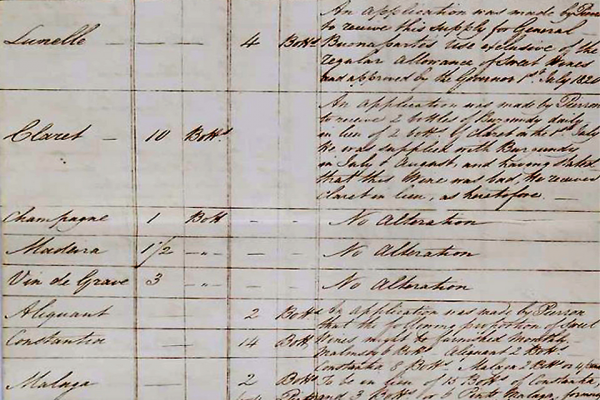 An application was made by Pierron
to receive this supply for General
Lunelle — 4 Botts Buonapartes Use exclusive of the
regular allowance of Sweet Wines
had approved by the Governor 1st July 1820
An application was made by Pierron
to receive 2 bottles of Burgundy daily
in lieu of 2 botts of Claret on the 1st July
Claret — 10 Botts he was supplied with Burgundy
in July & August and having stated
that this Wine was bad, he receives
claret in lieu, as heretofore —
Champagne 1 Bott — — No Alteration
Madeira 1/2 —„— — No Alteration
Vin de Grave 3 —„— — No Alteration
Alequant 2 Botts by application was made by Pierron
that the following proportion of Sweet
Constantia — 14 Botts Wines might be furnished monthly
6 Botts Alequant 2 Botts
Constantia 8 Botts Malaga 2 Botts
Malaga — 2 Botts To be in lieu of 15 Botts of Constantia,
and 3 Botts or 6 Pints Malaga,